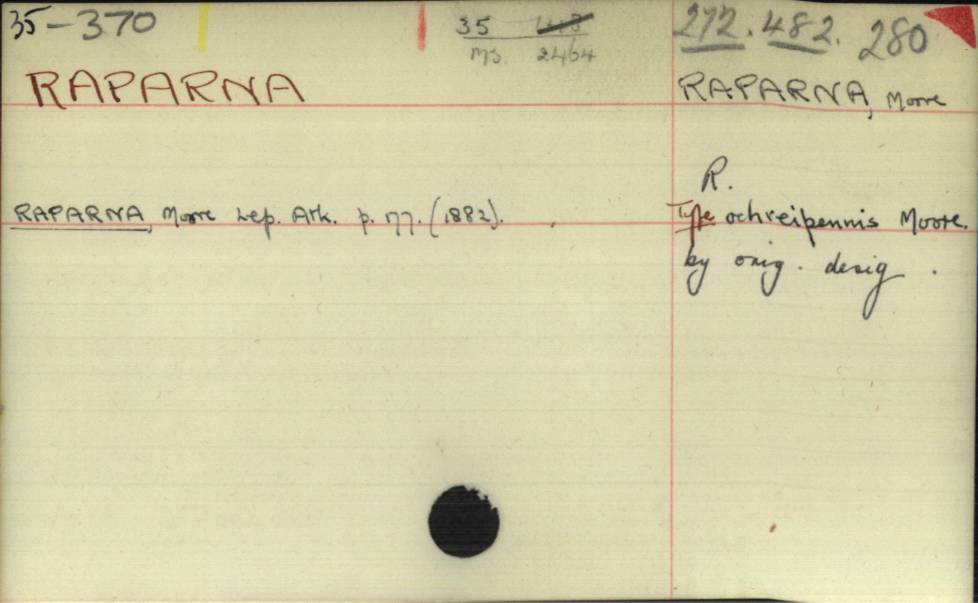 35-370
35
ms. 2464
272. 482. 280
RAPARNA
RAPARNA, Moore
R.
RAPARNA, Moore Lep. Atk. p. 177. (1882).
Type ochreipennis Moore.
by orig. desig.